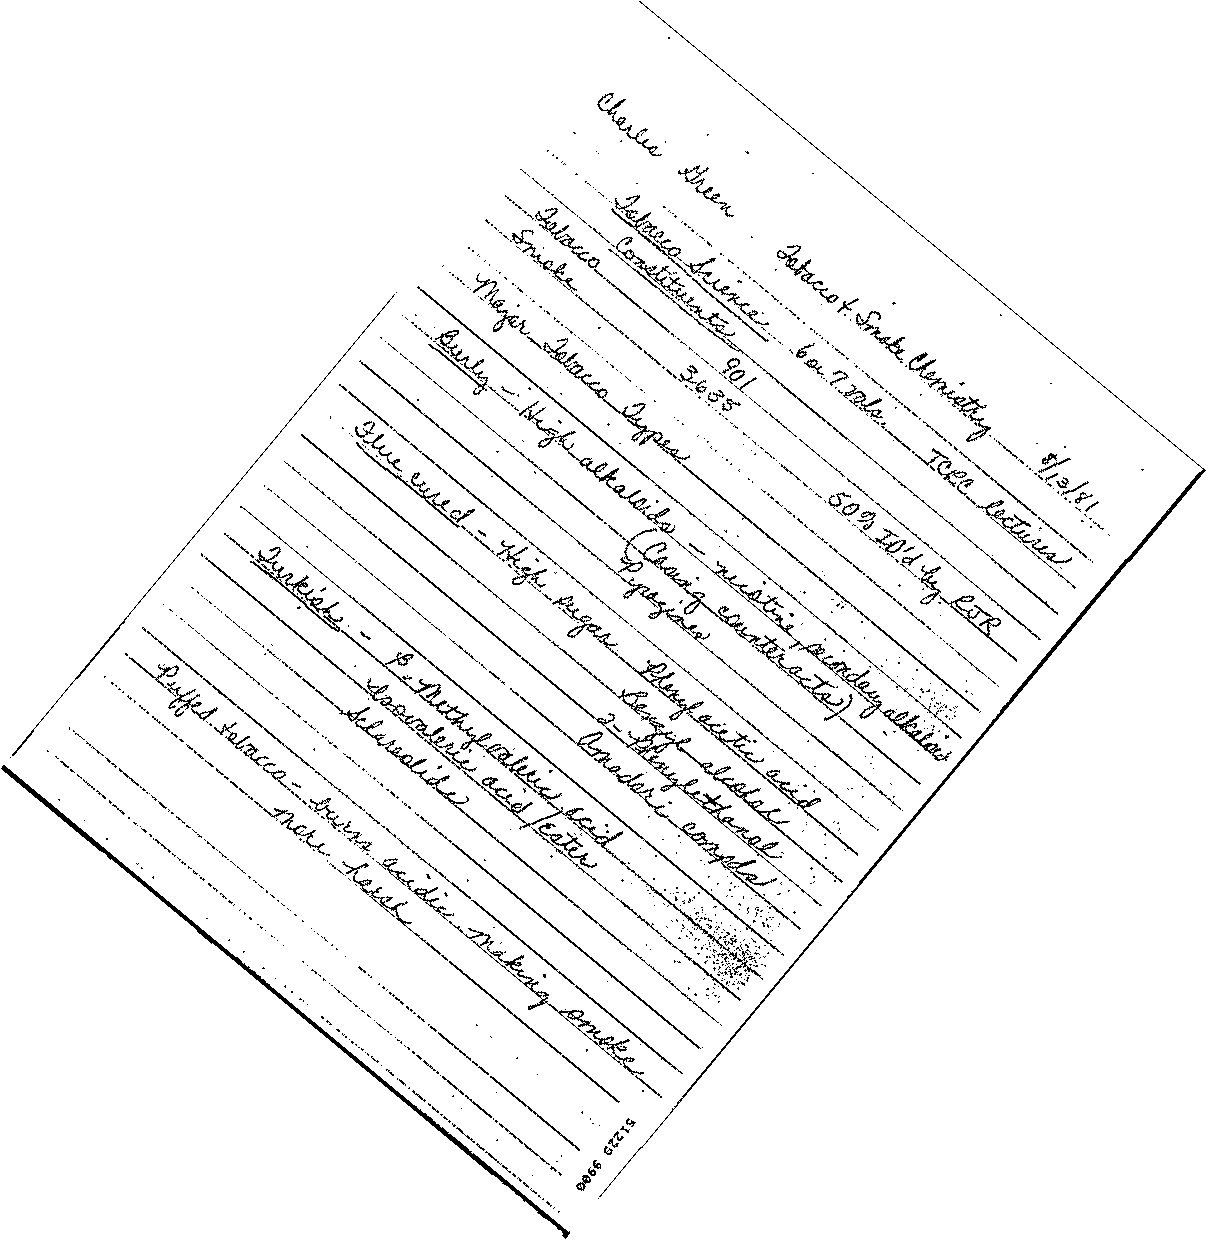 Charlie Green Tobacco & Smoke Chemistry 8/13/81
Tobacco Science 6 or 7 vols. TCRC lectures
Constituents
Tobacco 901
Smoke 3635 50% ID'd by RJR
Major Tobacco Types
Burley - High alkaloids - nicotine, secondary alkaloids
(Casing counteracts)
pyrazines
Flue cured - High sugar Phenylacetic acid
Benzyl alcohol
2-Phenylethanol
Amadori compds
Turkish - β-Methylvaleric acid
Isovaleric acid/ester
Sclareolide
Puffed tobacco - burns acidic making smoke
more harsh
51229 9900